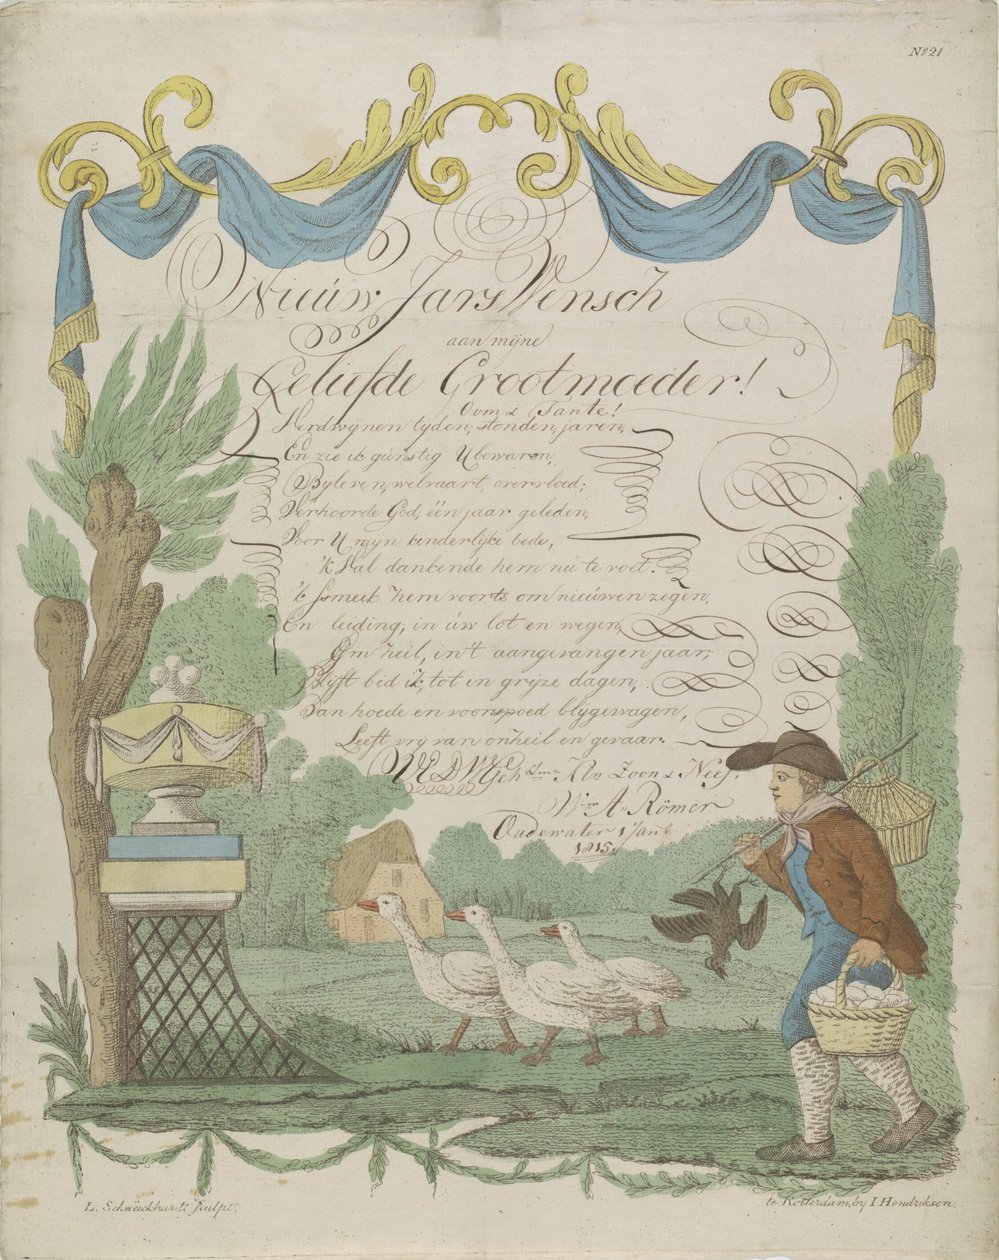 No 21
Nieúw Jars Wensch
aan mijne
Geliefde Grootmoeder!
Oom & Tante!
Herdwijnen tyden, stonden, jaren,
En zie ik gúnstig U bewaren,
By leven, welvaart, overvloed;
Verhoorde God, één jaar geleden,
Voor U myn kenderlijke bede,
'k Val dankende hem nú te voet.
'k Smeek hem voorts om nieúwen zegen,
En leiding, in úw lot en wegen,
Om heil, in't aangevangen jaar;
Blyft bid ik, tot in grijze dagen,
Van hoede en voorspoed blijgewagen,
Leeft vrij van onheil en gevaar.
Zoon & Neef.
Wm A Römer
Oudewater 1 Janr
1815.
L. Schweickhardt sculpt.
te Rotterdam, by I Hendriksen.